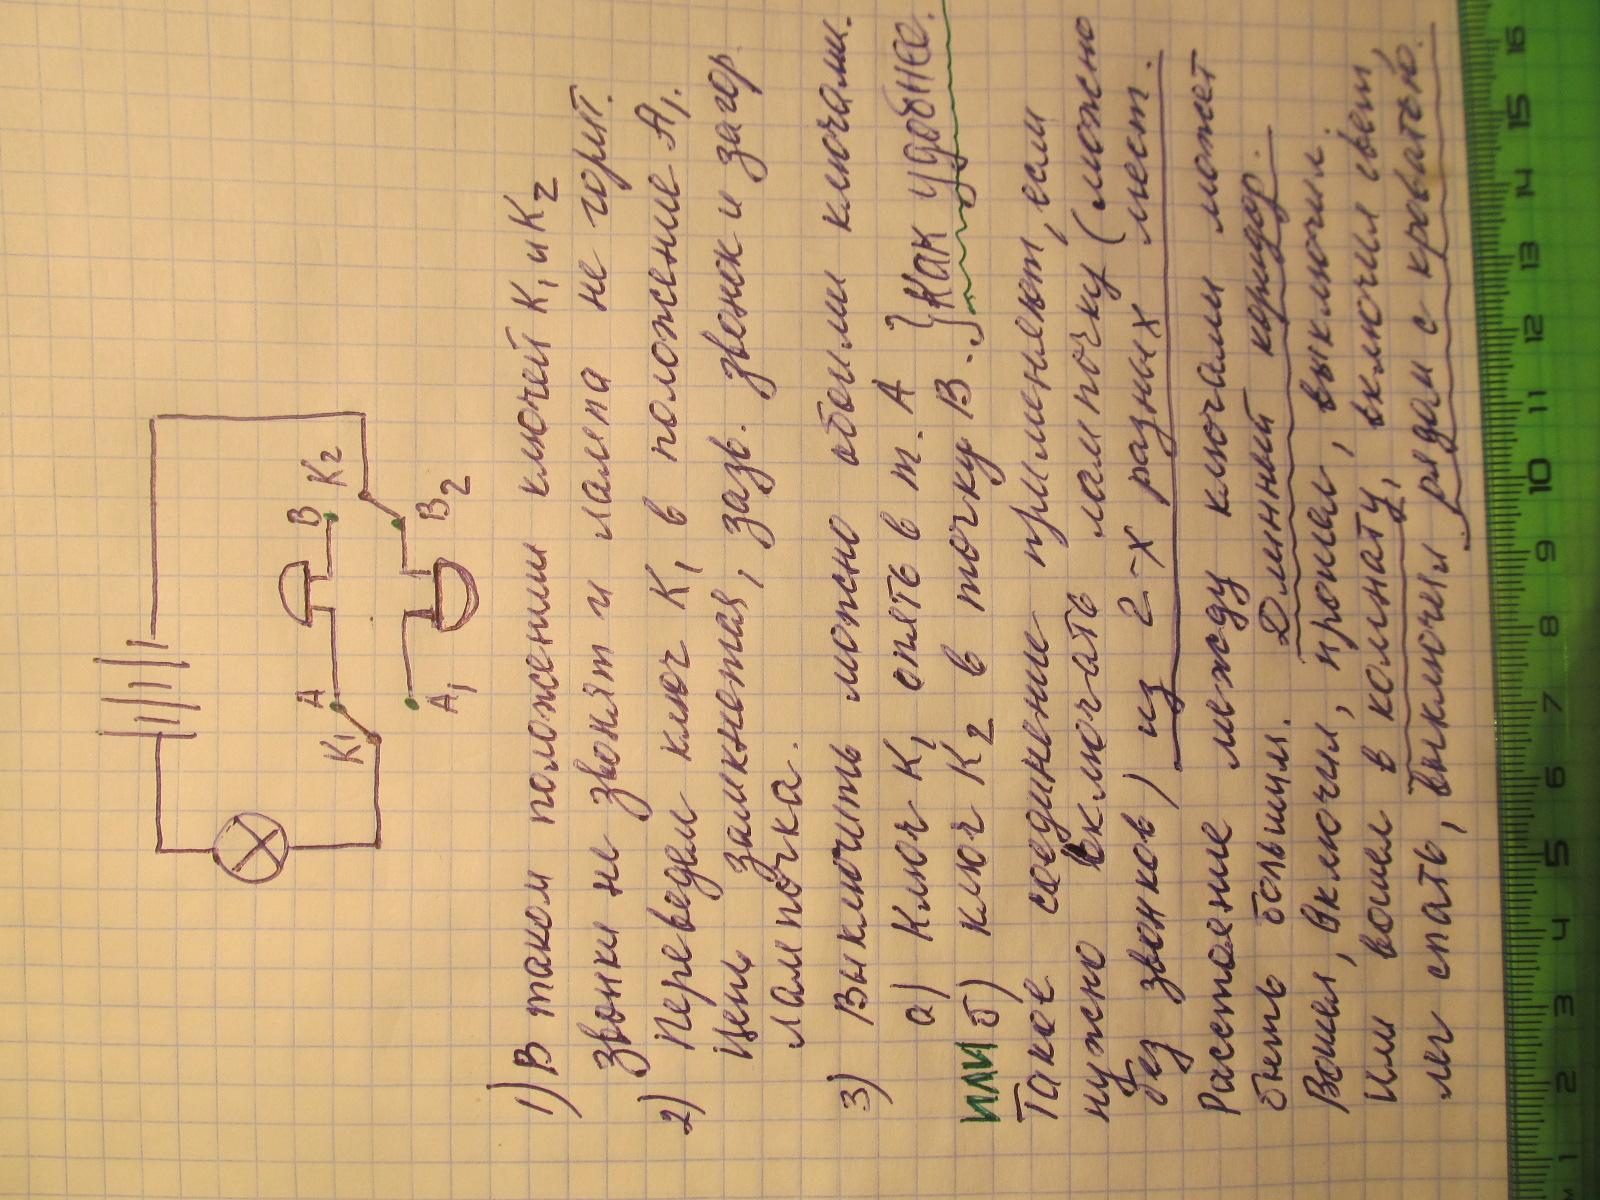 К₁
А
В
К₂
А₁
В₂
1) В таком положении ключей К₁ и К₂
звонки не звонят и лампа не горит.
2) Перевели ключ К₁ в положение А₁.
Цепь замкнется, зазв. звонок и загор.
лампочка.
3) Выключить можно обоими ключами.
а) Ключ К₁ опять в т. А } Как удобнее.
или б) ключ К₂ в точку В.
Такое соединение применяют, если
нужно включать лампочку (можно
без звонков) из 2-х разных мест.
Расстояние между ключами может
быть большим. Длинный коридор.
Вошел, включил, прошел, выключил.
Или вошел в комнату, включил свет,
лег спать, выключил рядом с кроватью.
1 2 3 4 5 6 7 8 9 10 11 12 13 14 15 16